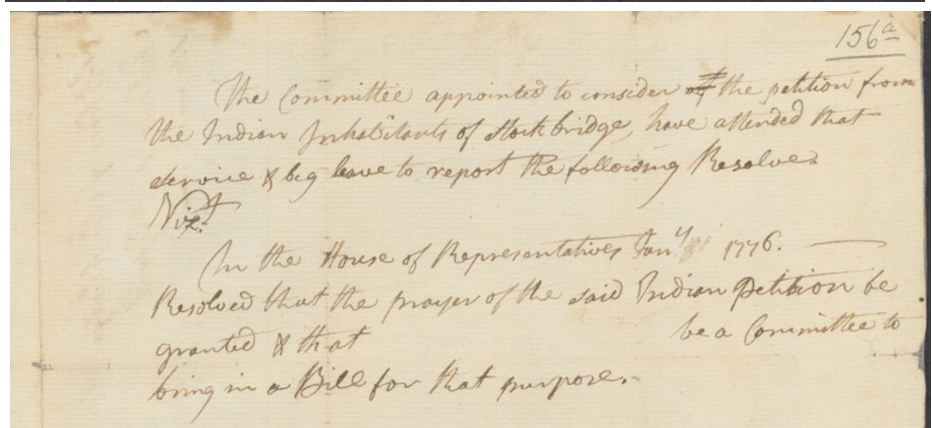 156a
The Committee appointed to consider of the petition from
the Indian Inhabitants of Stockbridge, have attended that
service & beg leave to report the following Resolve.
Vizt.
In the House of Representatives Jany 1776.
Resolved that the prayer of the said Indian Petition be
granted & that be a Committee to
bring in a Bill for that purpose.